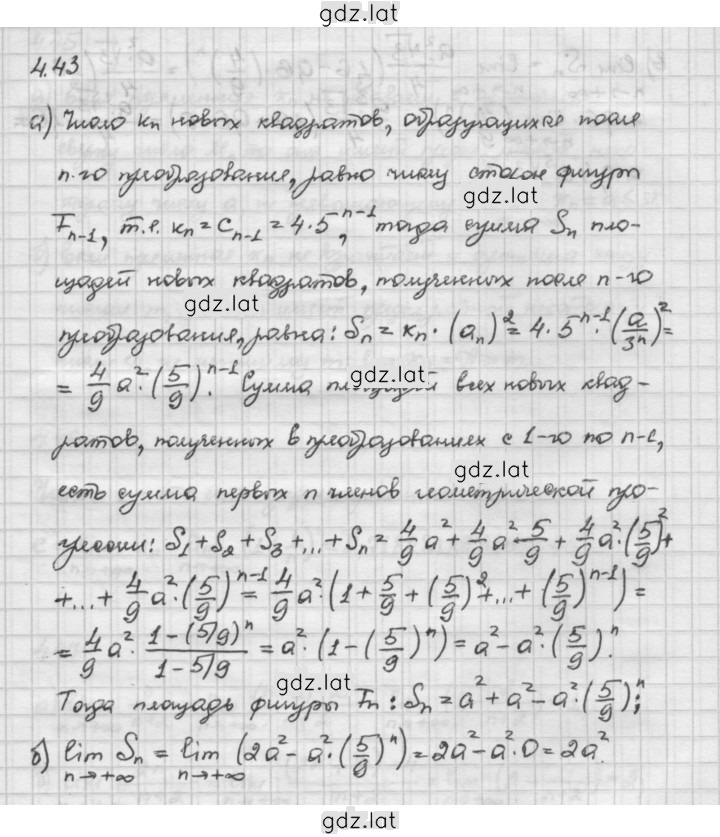 gdz.lat
4.43
а) Число kₙ новых квадратов, образующихся после
gdz.lat
n-го преобразования, равно числу сторон фигуры
gdz.lat
Fₙ₋₁, т.е. kₙ = Cₙ₋₁ = 4·5ⁿ⁻¹, тогда сумма Sₙ пло-
щадей новых квадратов, полученных после n-го
gdz.lat
преобразования, равна: Sₙ = kₙ · (aₙ)² = 4·5ⁿ⁻¹ · (a/3ⁿ)² =
= 4/9 a² · (5/9)ⁿ⁻¹. Сумма площадей всех новых квад-
gdz.lat
ратов, полученных в преобразованиях с 1-го по n-1,
gdz.lat
есть сумма первых n членов геометрической про-
грессии: S₁ + S₂ + S₃ + ... + Sₙ = 4/9 a² + 4/9 a² · 5/9 + 4/9 a² · (5/9)² +
gdz.lat
+ ... + 4/9 a² · (5/9)ⁿ⁻¹ = 4/9 a² · (1 + 5/9 + (5/9)² + ... + (5/9)ⁿ⁻¹) =
gdz.lat
= 4/9 a² · (1-(5/9)ⁿ)/(1-5/9) = a² · (1 - (5/9)ⁿ) = a² - a² · (5/9)ⁿ.
gdz.lat
Тогда площадь фигуры Fₙ: Sₙ = a² + a² - a² · (5/9)ⁿ;
б) lim Sₙ = lim (2a² - a² · (5/9)ⁿ) = 2a² - a² · 0 = 2a².
n→+∞ n→+∞
gdz.lat
gdz.lat